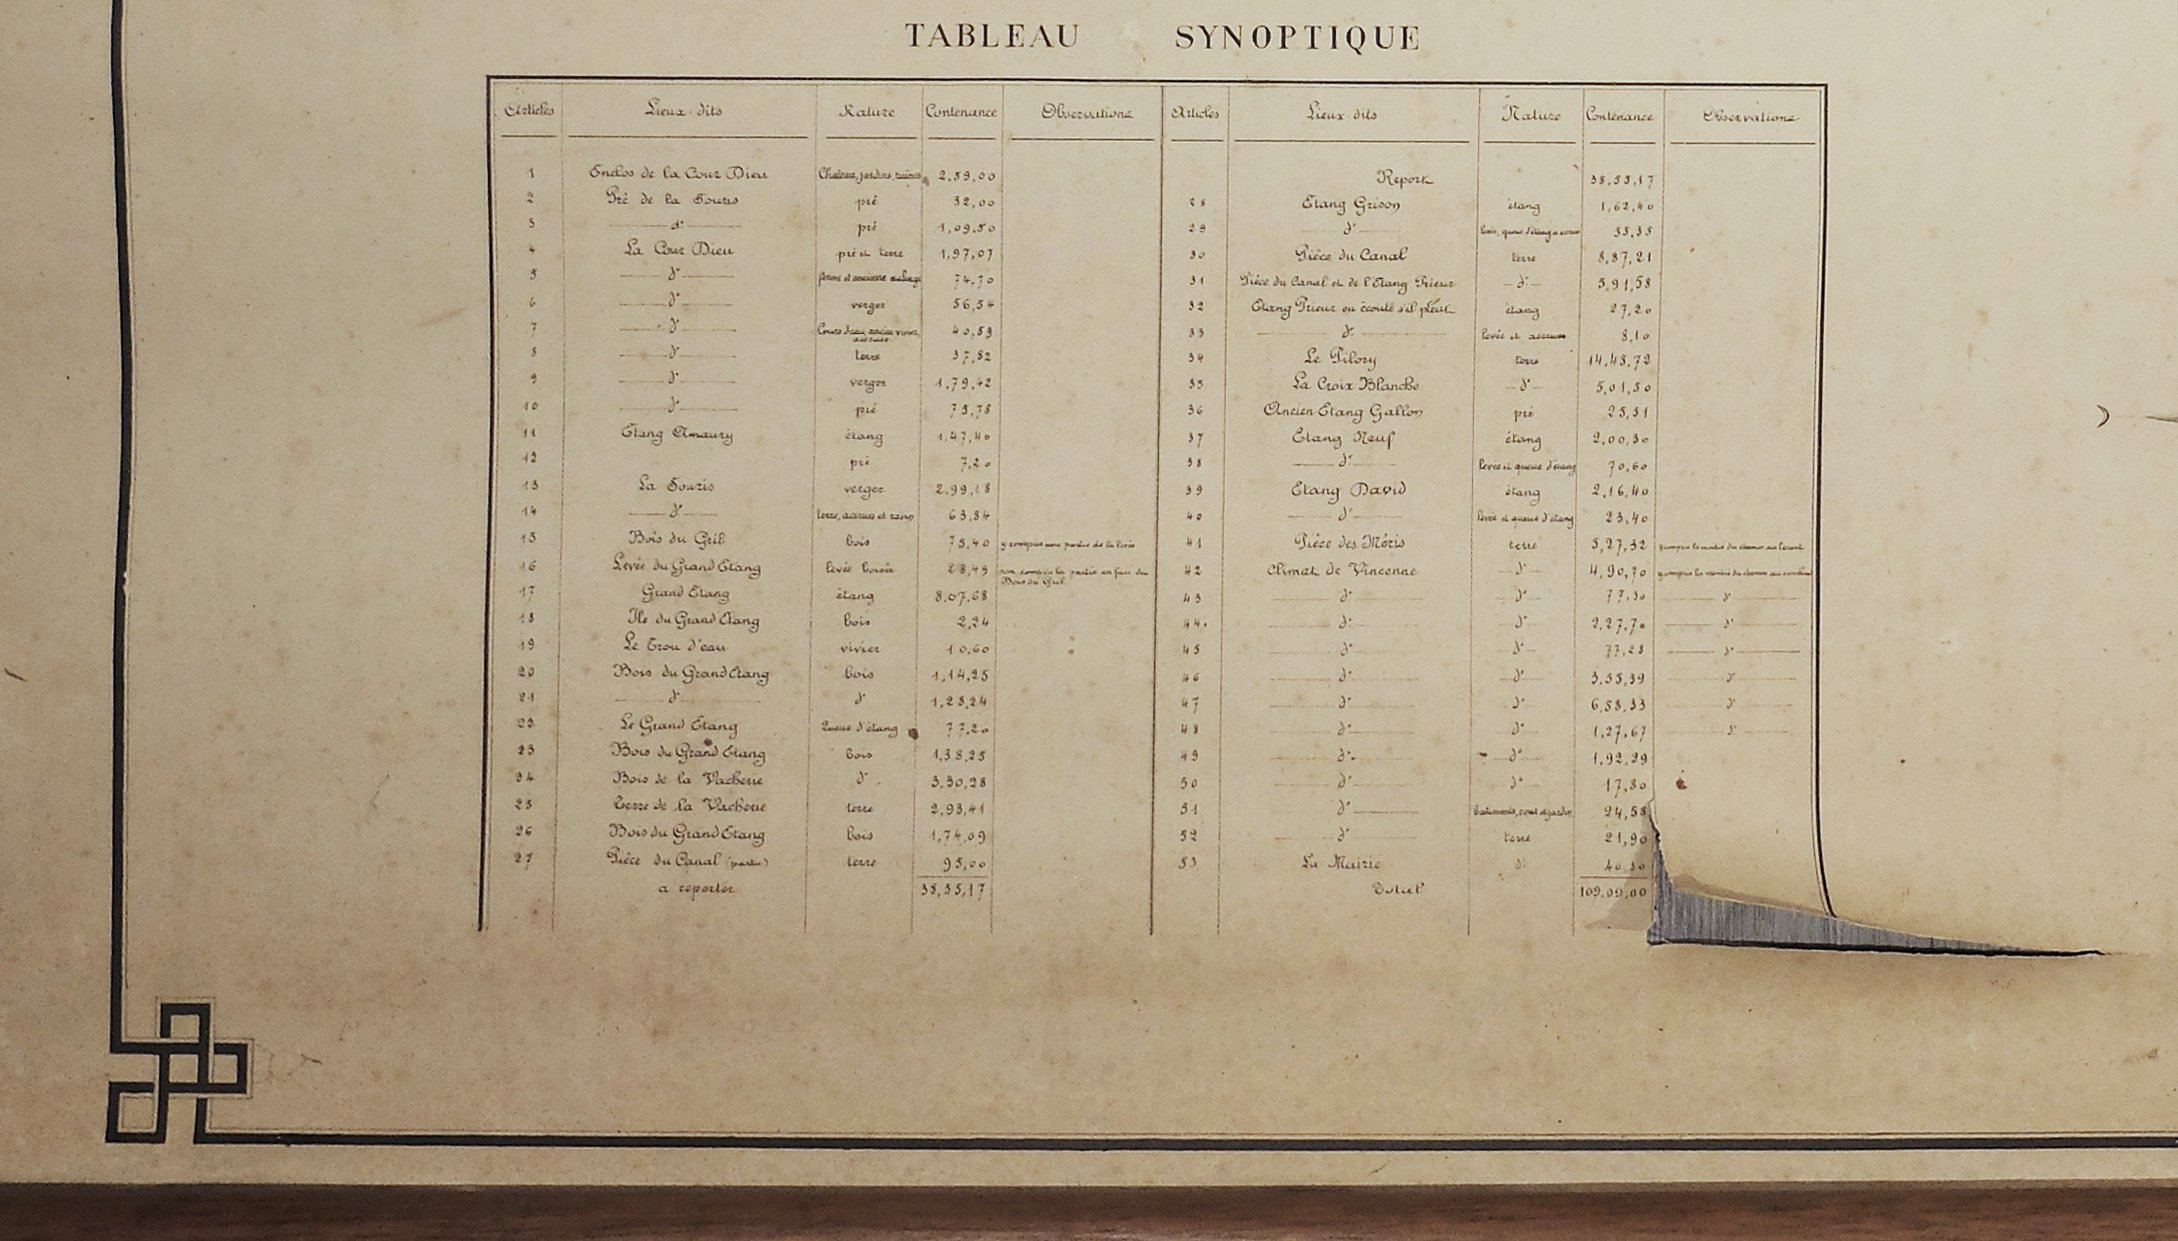 TABLEAU SYNOPTIQUE
Articles Lieux-dits Nature Contenance Observations
1 Enclos de la Cour Dieu Chateau, jardins, ruines 2,59,00
2 Pré de la Souris pré 32,00
3 d° pré 1,09,50
4 La Cour Dieu pré et terre 1,97,07
5 d° ferme et ancienne 74,70
6 d° verger 56,54
7 d° Cours d'eau, ancien vivier, accrues 40,59
8 d° terre 37,82
9 d° verger 1,79,42
10 d° pré 75,78
11 Etang Amaury étang 1,47,40
12 pré 7,20
13 La Souris verger 2,99,18
14 d° terre, accrues et 63,84
15 Bois du Gril bois 75,40 y compris une partie de la levée
16 Levée du Grand Etang levée boisée 28,49 non compris la partie en face du
Bois du Gril.
17 Grand Etang étang 8,07,68
18 Ile du Grand Etang bois 2,24
19 Le Trou d'eau vivier 10,60
20 Bois du Grand Etang bois 1,14,25
21 d° d° 1,28,24
22 Le Grand Etang Queue d'étang 77,20
23 Bois du Grand Etang bois 1,38,25
24 Bois de la Vacherie d° 3,30,28
25 Terre de la Vacherie terre 2,93,41
26 Bois du Grand Etang bois 1,74,09
27 Pièce du Canal (partie) terre 95,00
a reporter 38,55,17
Articles Lieux-dits Nature Contenance Observations
Report 38,55,17
28 Etang Grison étang 1,62,40
29 d° levée, queue d'étang et 55,35
30 Pièce du Canal terre 8,87,21
31 Pièce du Canal et de l'Etang Prieur d° 5,91,58
32 Etang Prieur ou écoute s'il pleut étang 27,20
33 d° levée et accrues 8,10
34 Le Pilory terre 14,48,72
35 La Croix Blanche d° 5,01,50
36 Ancien Etang Gallon pré 25,51
37 Etang Neuf étang 2,00,30
38 d° levée et queue d'étang 70,60
39 Etang David étang 2,16,40
40 d° levée et queue d'étang 23,40
41 Pièce des Méris terre 5,27,32 y compris la moitié du chemin au levant
42 Climat de Vincenne d° 4,90,70 y compris la moitié du chemin au couchant
43 d° d° 77,30 d°
44 d° d° 2,27,70 d°
45 d° d° 77,28 d°
46 d° d° 3,55,39 d°
47 d° d° 6,58,33 d°
48 d° d° 1,27,67 d°
49 d° d° 1,92,29
50 d° d° 17,80
51 d° batiments, cour et jardin 24,58
52 d° terre 21,90
53 La Mairie d° 40,30
Total 109,09,00